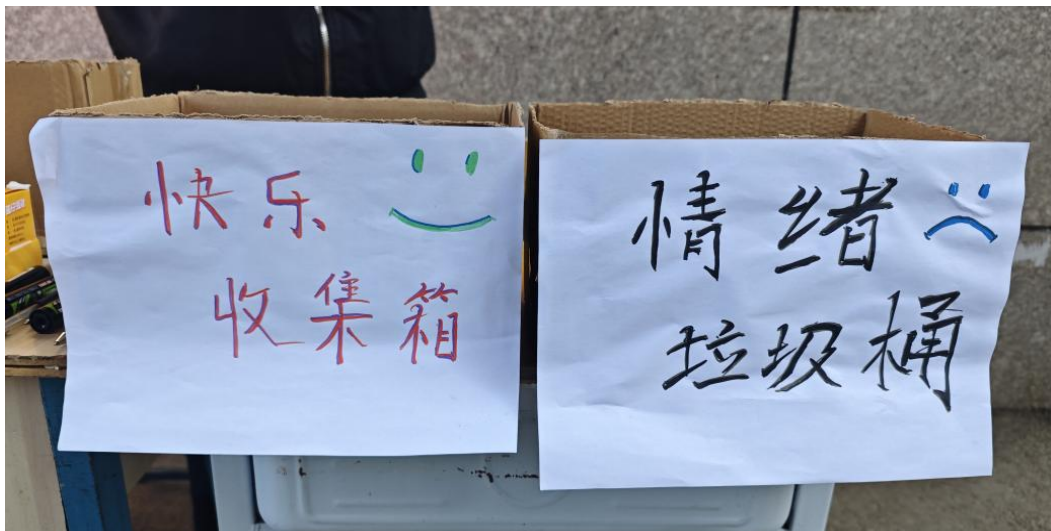 快乐
收集箱
情绪
垃圾桶